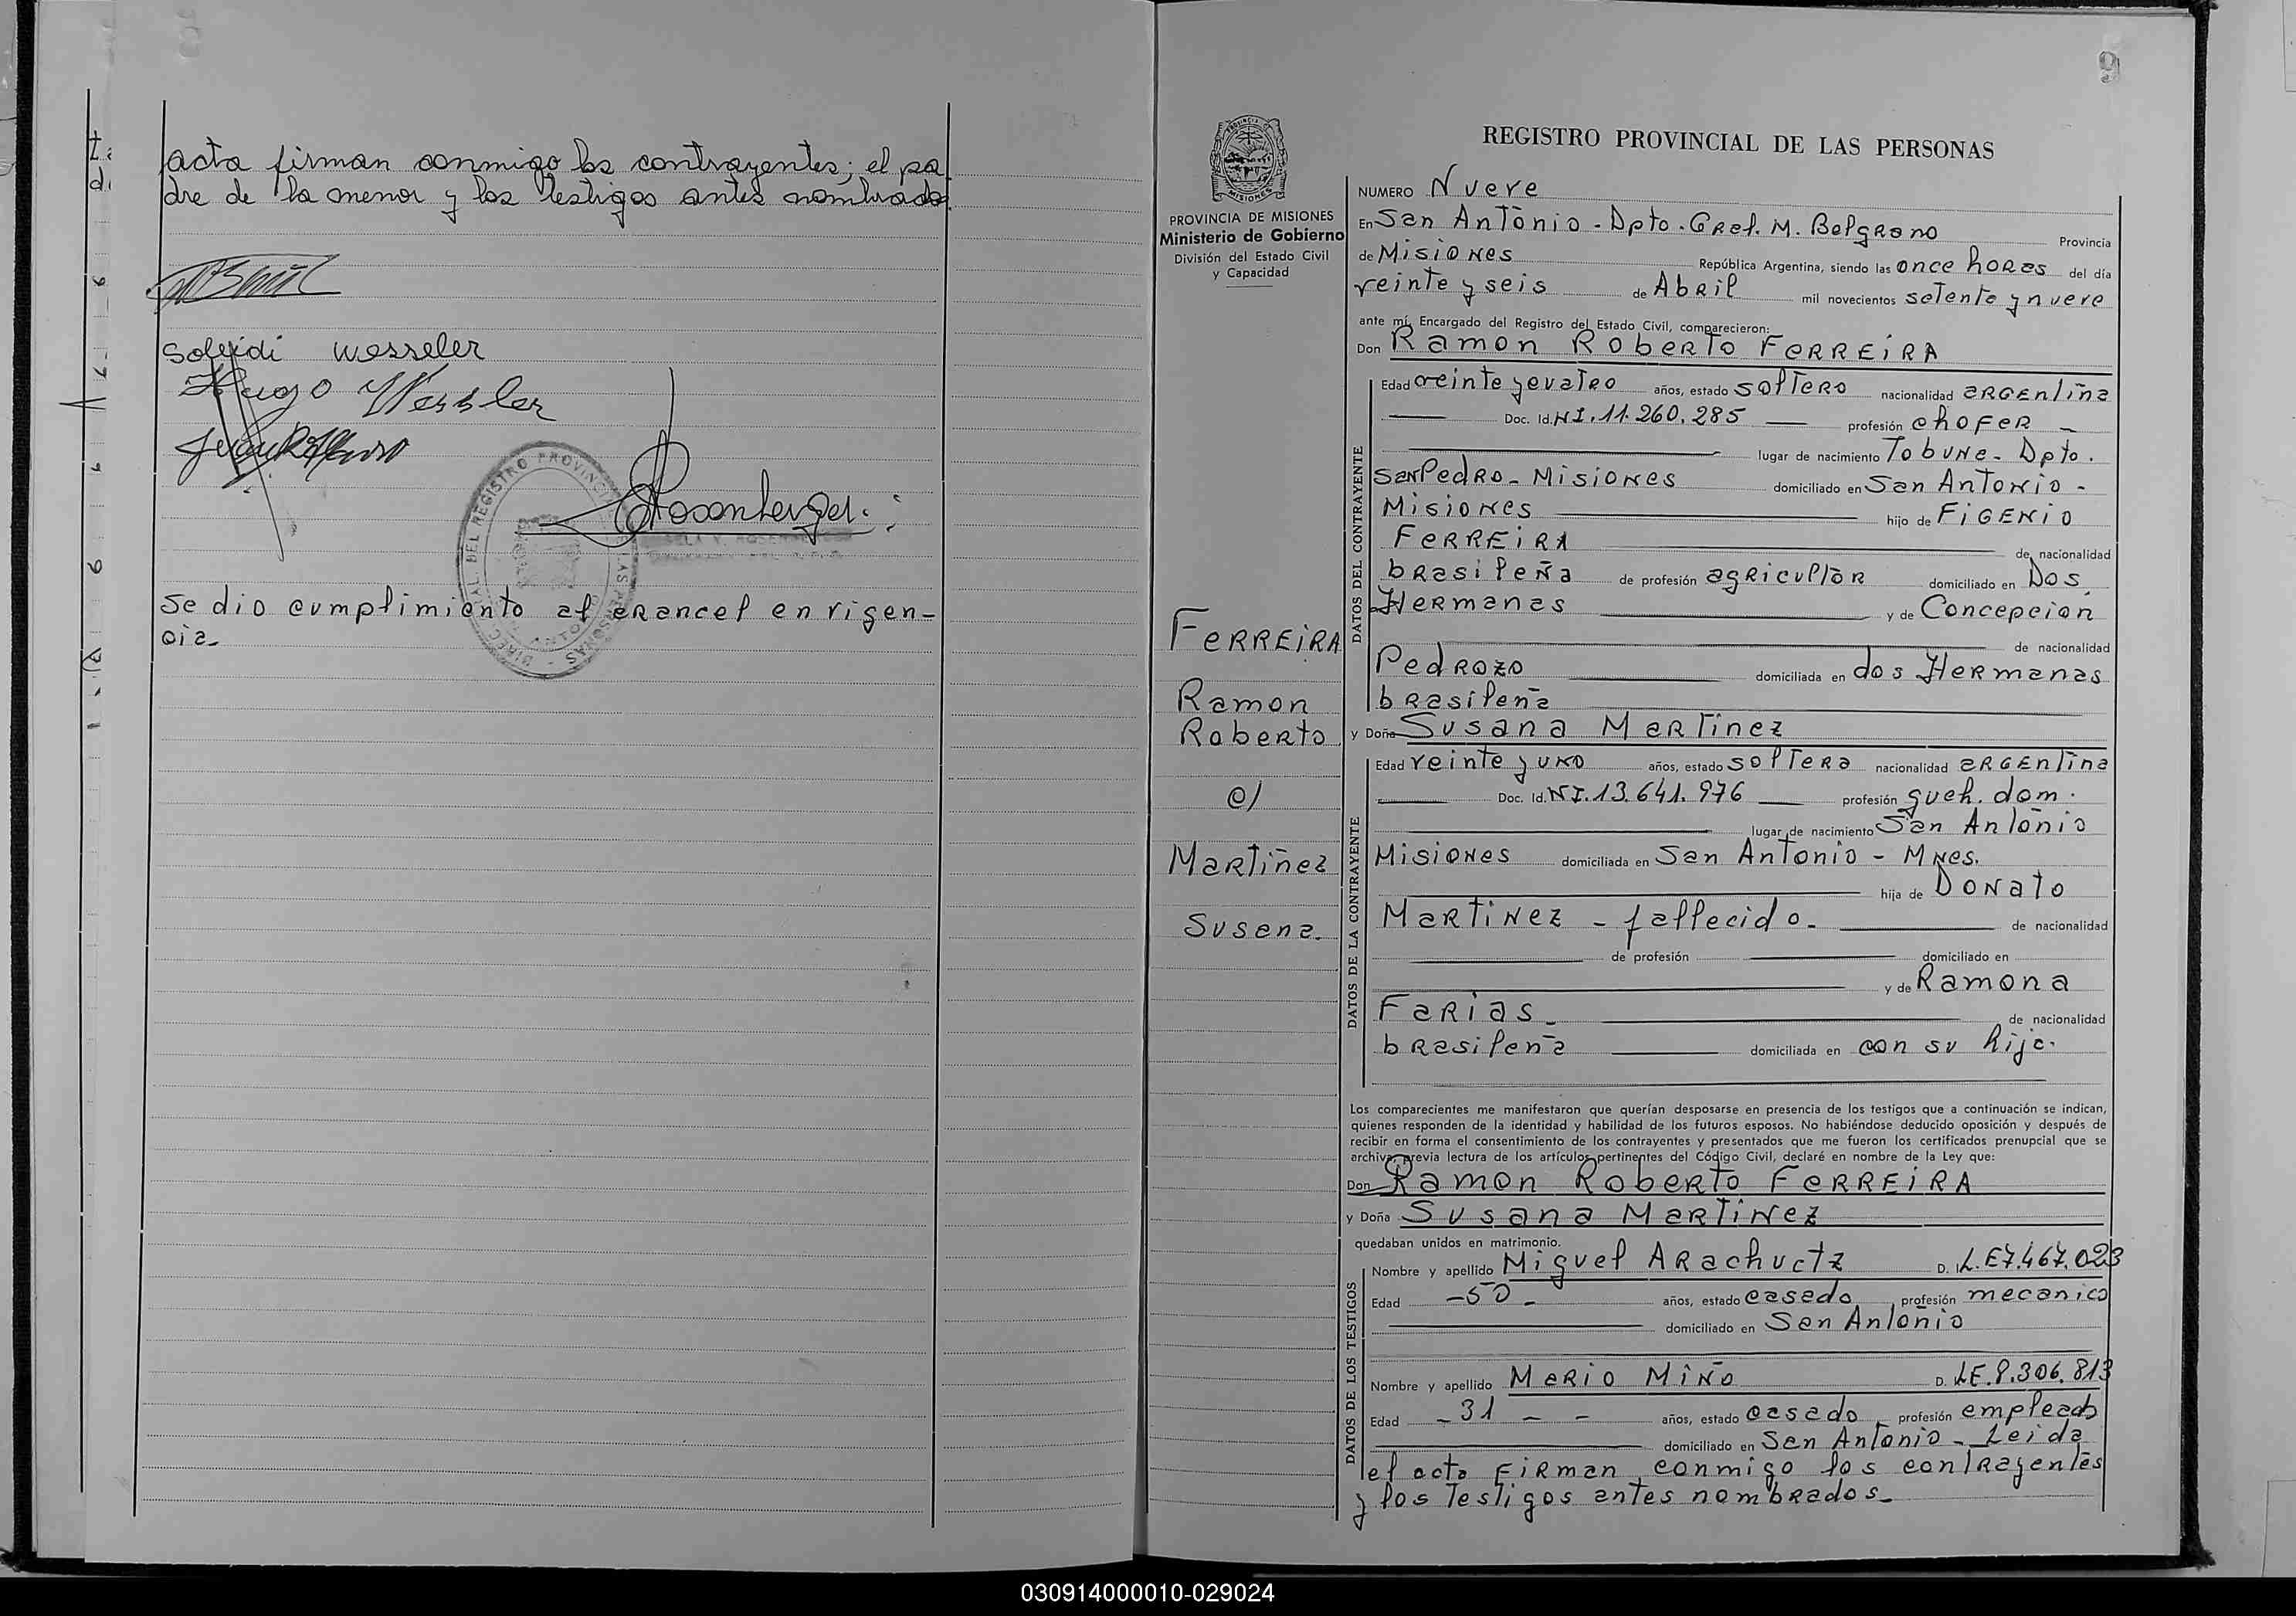 acta firman conmigo los contrayentes; el pa
dre de la menor y los testigos antes nombrados.
Soleidi Wesseler
Hugo Wessler
Rosenberger
Se dio cumplimiento al arancel en vigen-
cia-
DIREC GRAL. DEL REGISTRO PROVINCIAL DE LAS PERSONAS
9
REGISTRO PROVINCIAL DE LAS PERSONAS
PROVINCIA DE MISIONES
Ministerio de Gobierno
División del Estado Civil
y Capacidad
NUMERO Nueve
En San Antonio - Dpto. Gral. M. Belgrano Provincia
de Misiones República Argentina, siendo las once horas del día
veinte y seis de Abril mil novecientos setenta y nueve
ante mí, Encargado del Registro del Estado Civil, comparecieron:
Don Ramon Roberto FERREIRA
DATOS DEL CONTRAYENTE
Edad veinte y cuatro años, estado soltero nacionalidad argentina
Doc. Id. NI. 11.260.285 profesión chofer
lugar de nacimiento Tobuna - Dpto.
San Pedro - Misiones domiciliado en San Antonio -
Misiones hijo de FIGENIO
FERREIRA de nacionalidad
brasileña de profesión agricultor domiciliado en Dos
Hermanas y de Concepcion
de nacionalidad
Pedrozo domiciliada en dos Hermanas
brasileña
FERREIRA
Ramon
Roberto
c/
Martinez
Susana.
y Doña Susana Martinez
DATOS DE LA CONTRAYENTE
Edad veinte y uno años, estado soltera nacionalidad argentina
Doc. Id. NI. 13.641.976 profesión queh. dom.
lugar de nacimiento San Antonio
Misiones domiciliada en San Antonio - Mnes.
hija de Donato
Martinez - fallecido - de nacionalidad
de profesión domiciliado en
y de Ramona
Farias - de nacionalidad
brasileña domiciliada en con su hija.
Los comparecientes me manifestaron que querían desposarse en presencia de los testigos que a continuación se indican,
quienes responden de la identidad y habilidad de los futuros esposos. No habiéndose deducido oposición y después de
recibir en forma el consentimiento de los contrayentes y presentados que me fueron los certificados prenupcial que se
archiva, previa lectura de los artículos pertinentes del Código Civil, declaré en nombre de la Ley que:
Don Ramon Roberto FERREIRA
y Doña Susana Martinez
quedaban unidos en matrimonio.
DATOS DE LOS TESTIGOS
Nombre y apellido Miguel Arachuctz D. I. L.E 7.467.023
Edad - 50 - años, estado casado, profesión mecanico
domiciliado en San Antonio
Nombre y apellido Mario Miño D. LE. 8.306.813
Edad - 31 - - años, estado casado, profesión empleado
domiciliado en San Antonio - Leida
el acta firman conmigo los contrayentes
y los testigos antes nombrados -
030914000010-029024